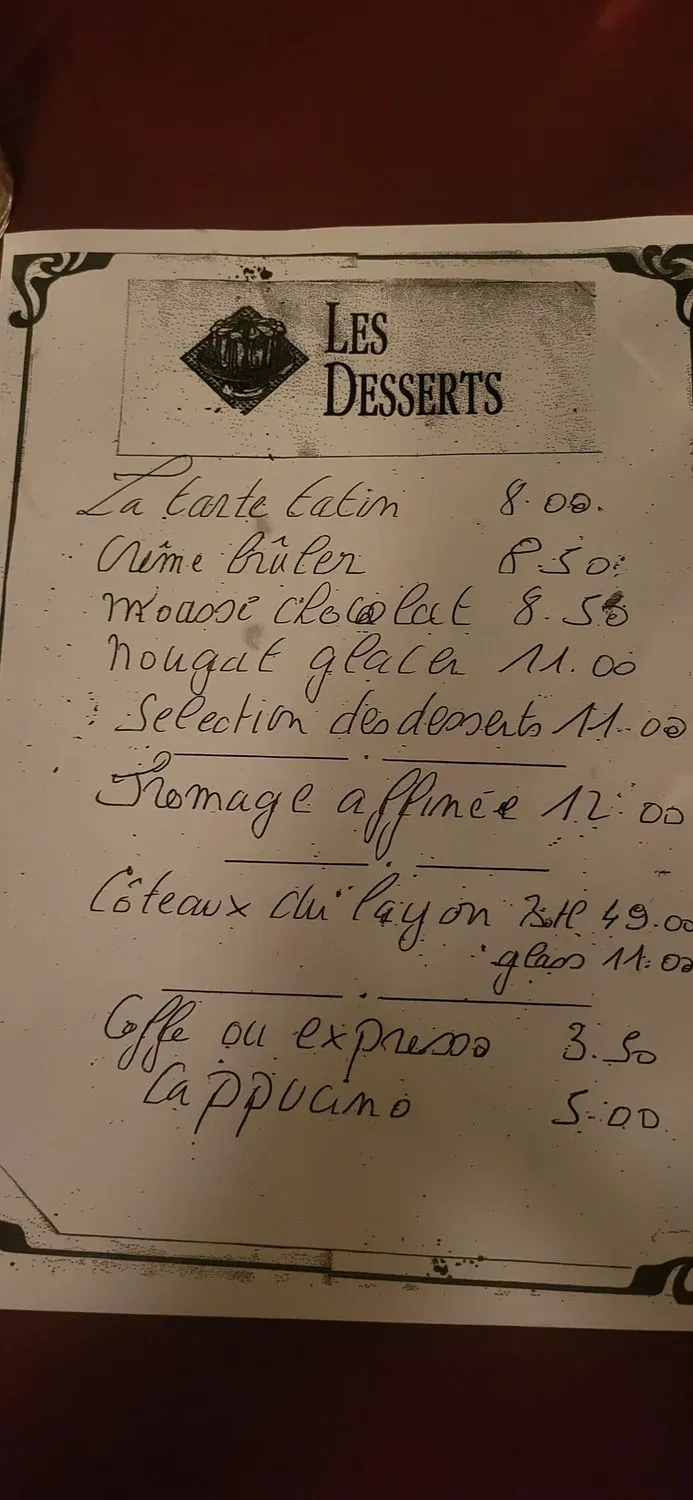 LES
DESSERTS
La tarte tatin 8.00.
Crême brûler 8.50
Mousse chocolat 8.50
Nougat glacer 11.00
Selection des desserts 11.00
Fromage affinée 12.00
Côteaux du layon 49.00
glass 11.00
Coffe ou expresso 3.50
Cappucino 5.00